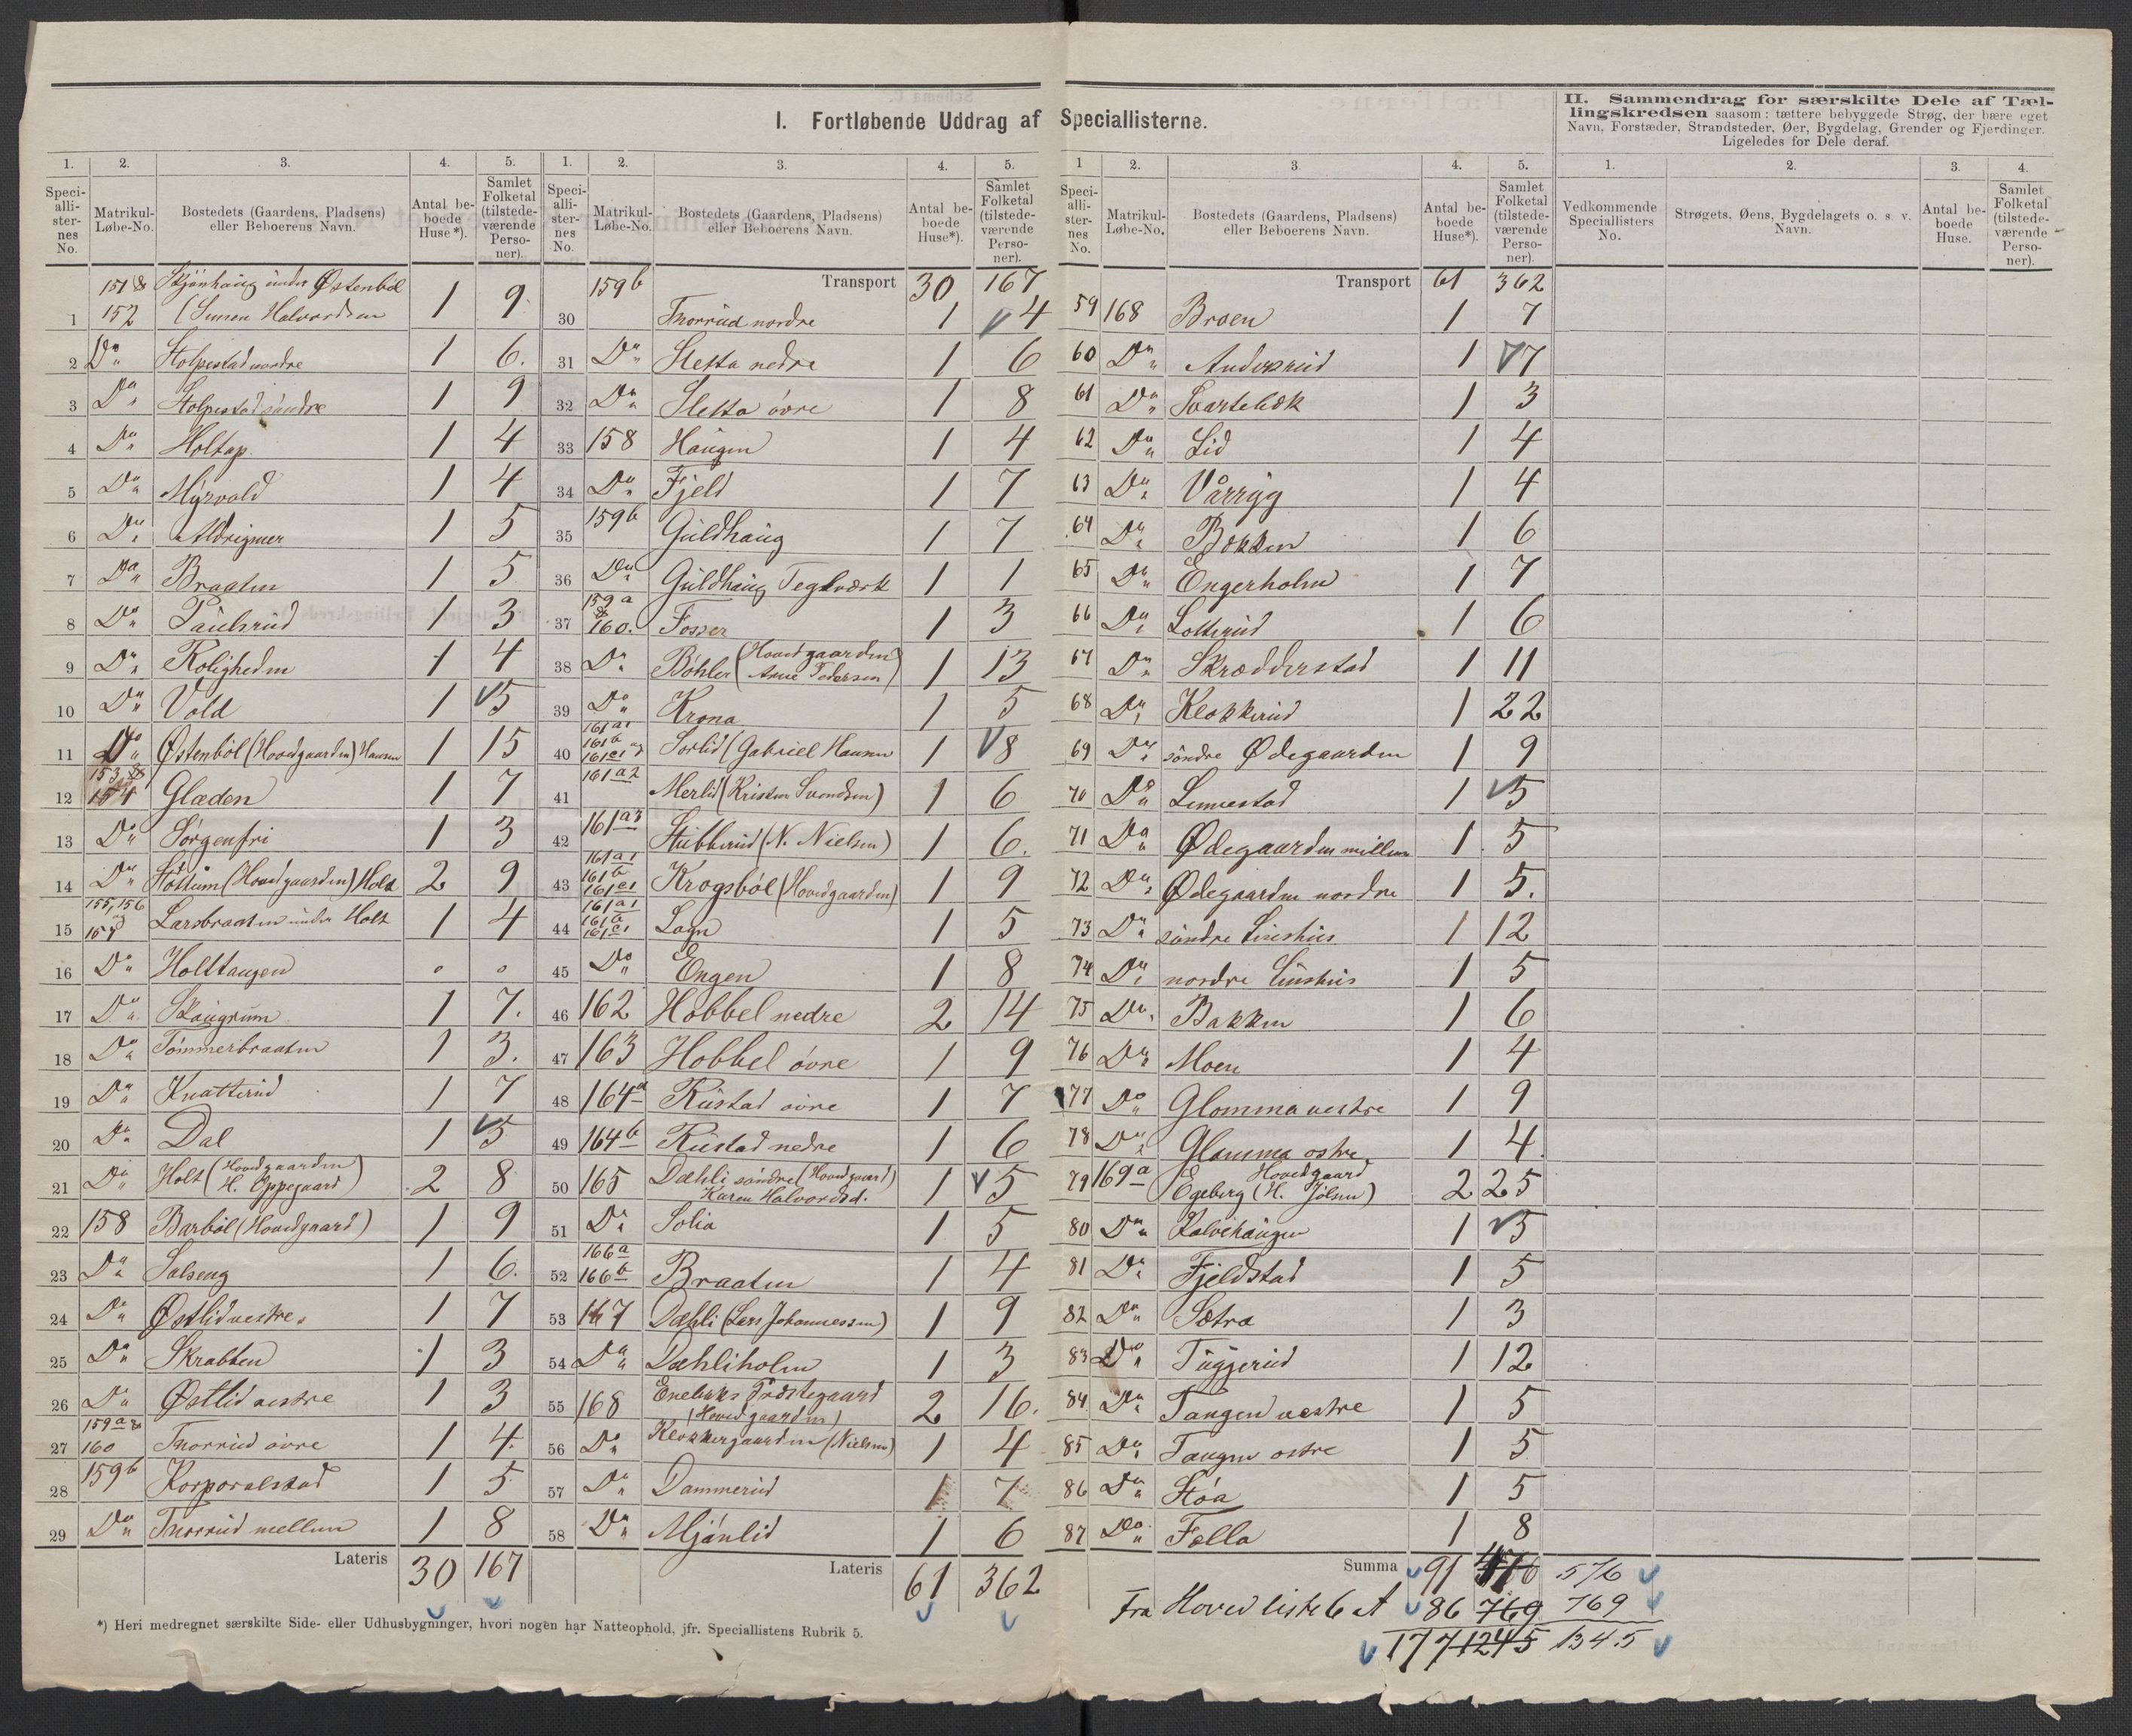 I. Fortløbende Uddrag af Speciallisterne.
II. Sammendrag for særskilte Dele af Tæl-
lingskredsen saasom: tættere bebyggede Strøg, der bære eget
Navn, Forstæder, Strandsteder, Øer, Bygdelag, Grender og Fjerdinger.
Ligeledes for Dele deraf.
1. 2. 3. 4. 5.
Speci-alli-ster-nes No. Matrikul-Løbe-No. Bostedets (Gaardens, Pladsens) eller Beboerens Navn. Antal be-boede Huse*). Samlet Folketal (tilstede-værende Perso-ner).
1 151 & 152 Skjønhaug under Østenbøl (Simen Halvordsen 1 9
2 Do Stolpestad nordre 1 6.
3 Do Stolpestad søndre 1 9
4 Do Holtop. 1 4
5 Do Myrvold 1 4
6 Do Aldrigmer 1 5
7 Do Braaten 1 5
8 Do Paulsrud 1 3
9 Do Roligheden 1 4
10 Do Vold 1 5
11 Do Østenbøl (Hovedgaarden) Hansen 1 15
12 153 & 154 Glæden 1 7
13 Do Sorgenfri 1 3
14 Do Støttum (Hovedgaarden) Holt 2 9
15 155, 156 og 157 Larsbraaten under Holt 1 4
16 Do Holttangen 0 0
17 Do Skaugrum 1 7.
18 Do Tømmerbraaten 1 3.
19 Do Knatterud 1 7
20 Do Dal 1 5
21 Do Holt (Hovedgaarden) H. Oppegaard) 2 8
22 158 Barbøl (Hovedgaard) 1 9
23 Do Solseng 1 6.
24 Do Østlid vestre. 1 7
25 Do Skrabben 1 3
26 Do Østlid østre 1 3
27 159a & 160 Thorrud øvre 1 4.
28 159b Korporalstad 1 5
29 Do Thorrud mellem 1 8
Lateris 30 167
1. 2. 3. 4. 5.
Speci-alli-ster-nes No. Matrikul-Løbe-No. Bostedets (Gaardens, Pladsens) eller Beboerens Navn. Antal be-boede Huse*). Samlet Folketal (tilstede-værende Perso-ner).
Transport 30 167
30 159b Thorrud nordre 1 4
31 Do Sletta nedre 1 6
32 Do Sletta øvre 1 8
33 158 Haugen 1 4
34 Do Fjeld 1 7
35 159b Guldhaug 1 7
36 Do Guldhaug Teglværk 1 1
37 159a & 160. Fosser 1 3
38 Do Bøhler (Hovedgaarden) Arne Pedersen) 1 13
39 Do Krona 1 5
40 161a1 161b 161c1 Sørlid (Gabriel Hansen 1 8
41 161a2 Merlid (Kristen Svendsen) 1 6
42 161a3 Stubberud (N. Nielsen) 1 6.
43 161a1 161b 161c1 Krogsbøl (Hovedgaarden) 1 9
44 161a1 161b 161c1 Løgn 1 5
45 Do Engen 1 8
46 162 Hobbel nedre 2 14
47 163 Hobbel øvre 1 9
48 164a Rustad øvre 1 7
49 164b Rustad nedre 1 6
50 165 Dæhli søndre (Hovedgaard) Karen Halvordsd. 1 5
51 Do Solia 1 5
52 166a 166b Braaten 1 4
53 167 Dæhli (Lars Johannessen) 1 9
54 Do Dæhliholm 1 3
55 168 Enebaks Præstegaard (Hovedgaarden) 2 16.
56 Do Klokkergaarden (Nielsen) 1 4
57 Do Dammerud 1 7
58 Do Mjønlid 1 6
Lateris 61 362
1 2. 3. 4. 5.
Speci-alli-ster-nes No. Matrikul-Løbe-No. Bostedets (Gaardens, Pladsens) eller Beboerens Navn. Antal be-boede Huse*). Samlet Folketal (tilstede-værende Perso-ner).
Transport 61 362
59 168 Broen 1 7
60 Do Anderud 1 7
61 Do Svartebæk 1 3
62 Do Lid 1 4
63 Do Vårryg 1 4
64 Do Bekken 1 6
65 Do Engerholm 1 7
66 Do Lotterud 1 6
67 Do Skrædderstad 1 11
68 Do Klokkerud 1 22
69 Do søndre Ødegaarden 1 9
70 Do Linnestad 1 5
71 Do Ødegaarden mellem 1 5
72 Do Ødegaarden nordre 1 5.
73 Do søndre 1 12
74 Do nordre 1 5
75 Do Bakken 1 6
76 Do Moen 1 4
77 Do Glomma vestre 1 9
78 Do Glomma østre 1 4
79 169a Egeberg (Hovedgaard H. Jølsen) 2 25
80 Do Kalvehaugen 1 5
81 Do Fjeldstad 1 5
82 Do Sætra 1 3
83 Do Tuggerud 1 12
84 Do Tangen vestre 1 5
85 Do Tangen østre 1 5
86 Do Støa 1 5
87 Do Fella 1 8
Summa 91 576
Fra Hovedliste 6 A 86 769 769
177 1245 1345
1. 2. 3. 4.
Vedkommende Speciallisters No. Strøgets, Øens, Bygdelagets o. s. v. Navn. Antal be-boede Huse. Samlet Folketal (tilstede-værende Perso-ner).
*) Heri medregnet særskilte Side- eller Udhusbygninger, hvori nogen har Natteophold, jfr. Speciallistens Rubrik 5.